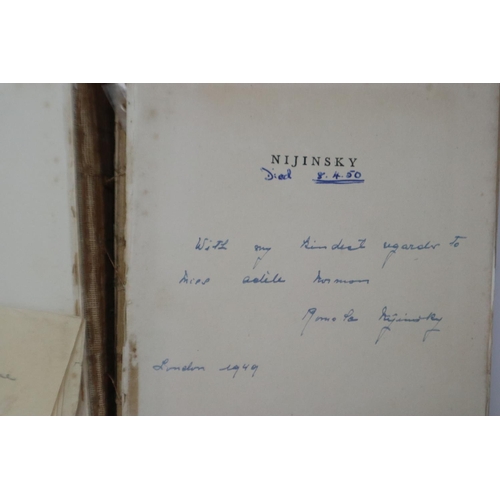 NIJINSKY
Died 8.4.50
With my kindest regards to
Miss adèle Norman
Romola Nijinsky
London 1949